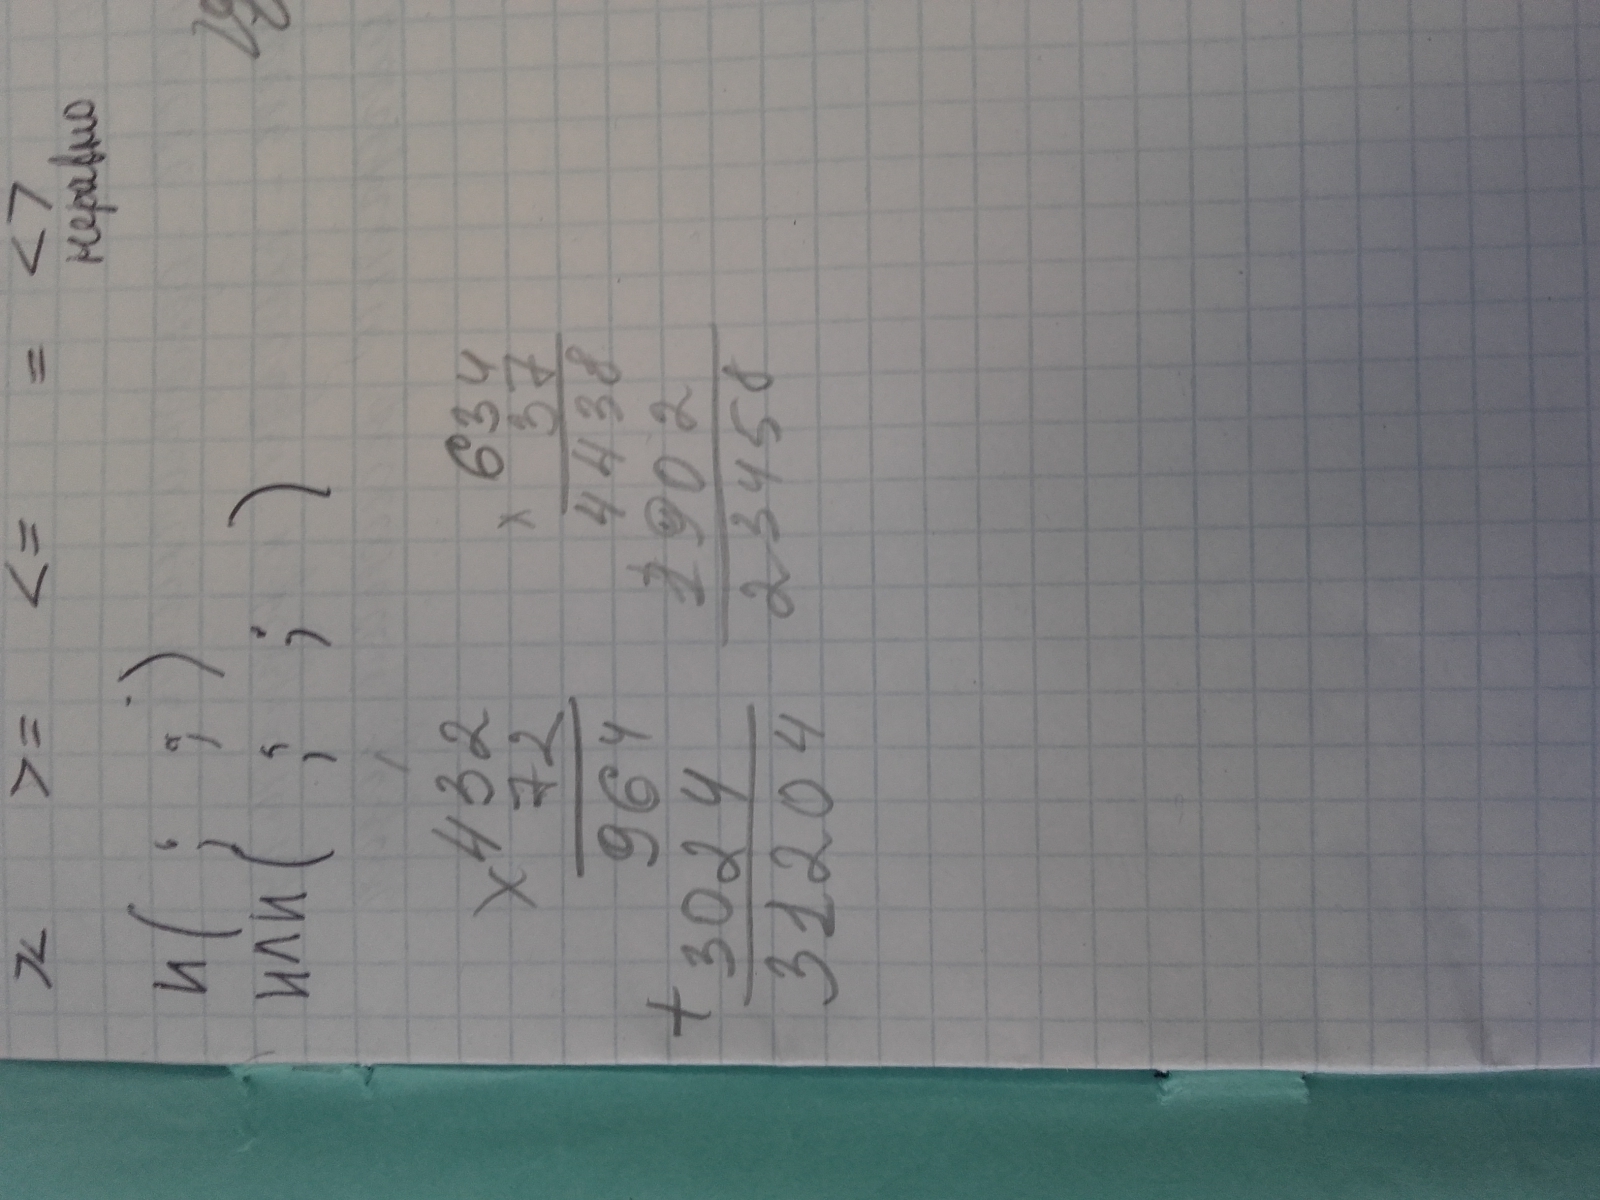 > >= <= = <>
неравно
и( ; ; )
или( ; ; )
×432
72
964
+3024
31204
× 634
37
4438
1902
23458